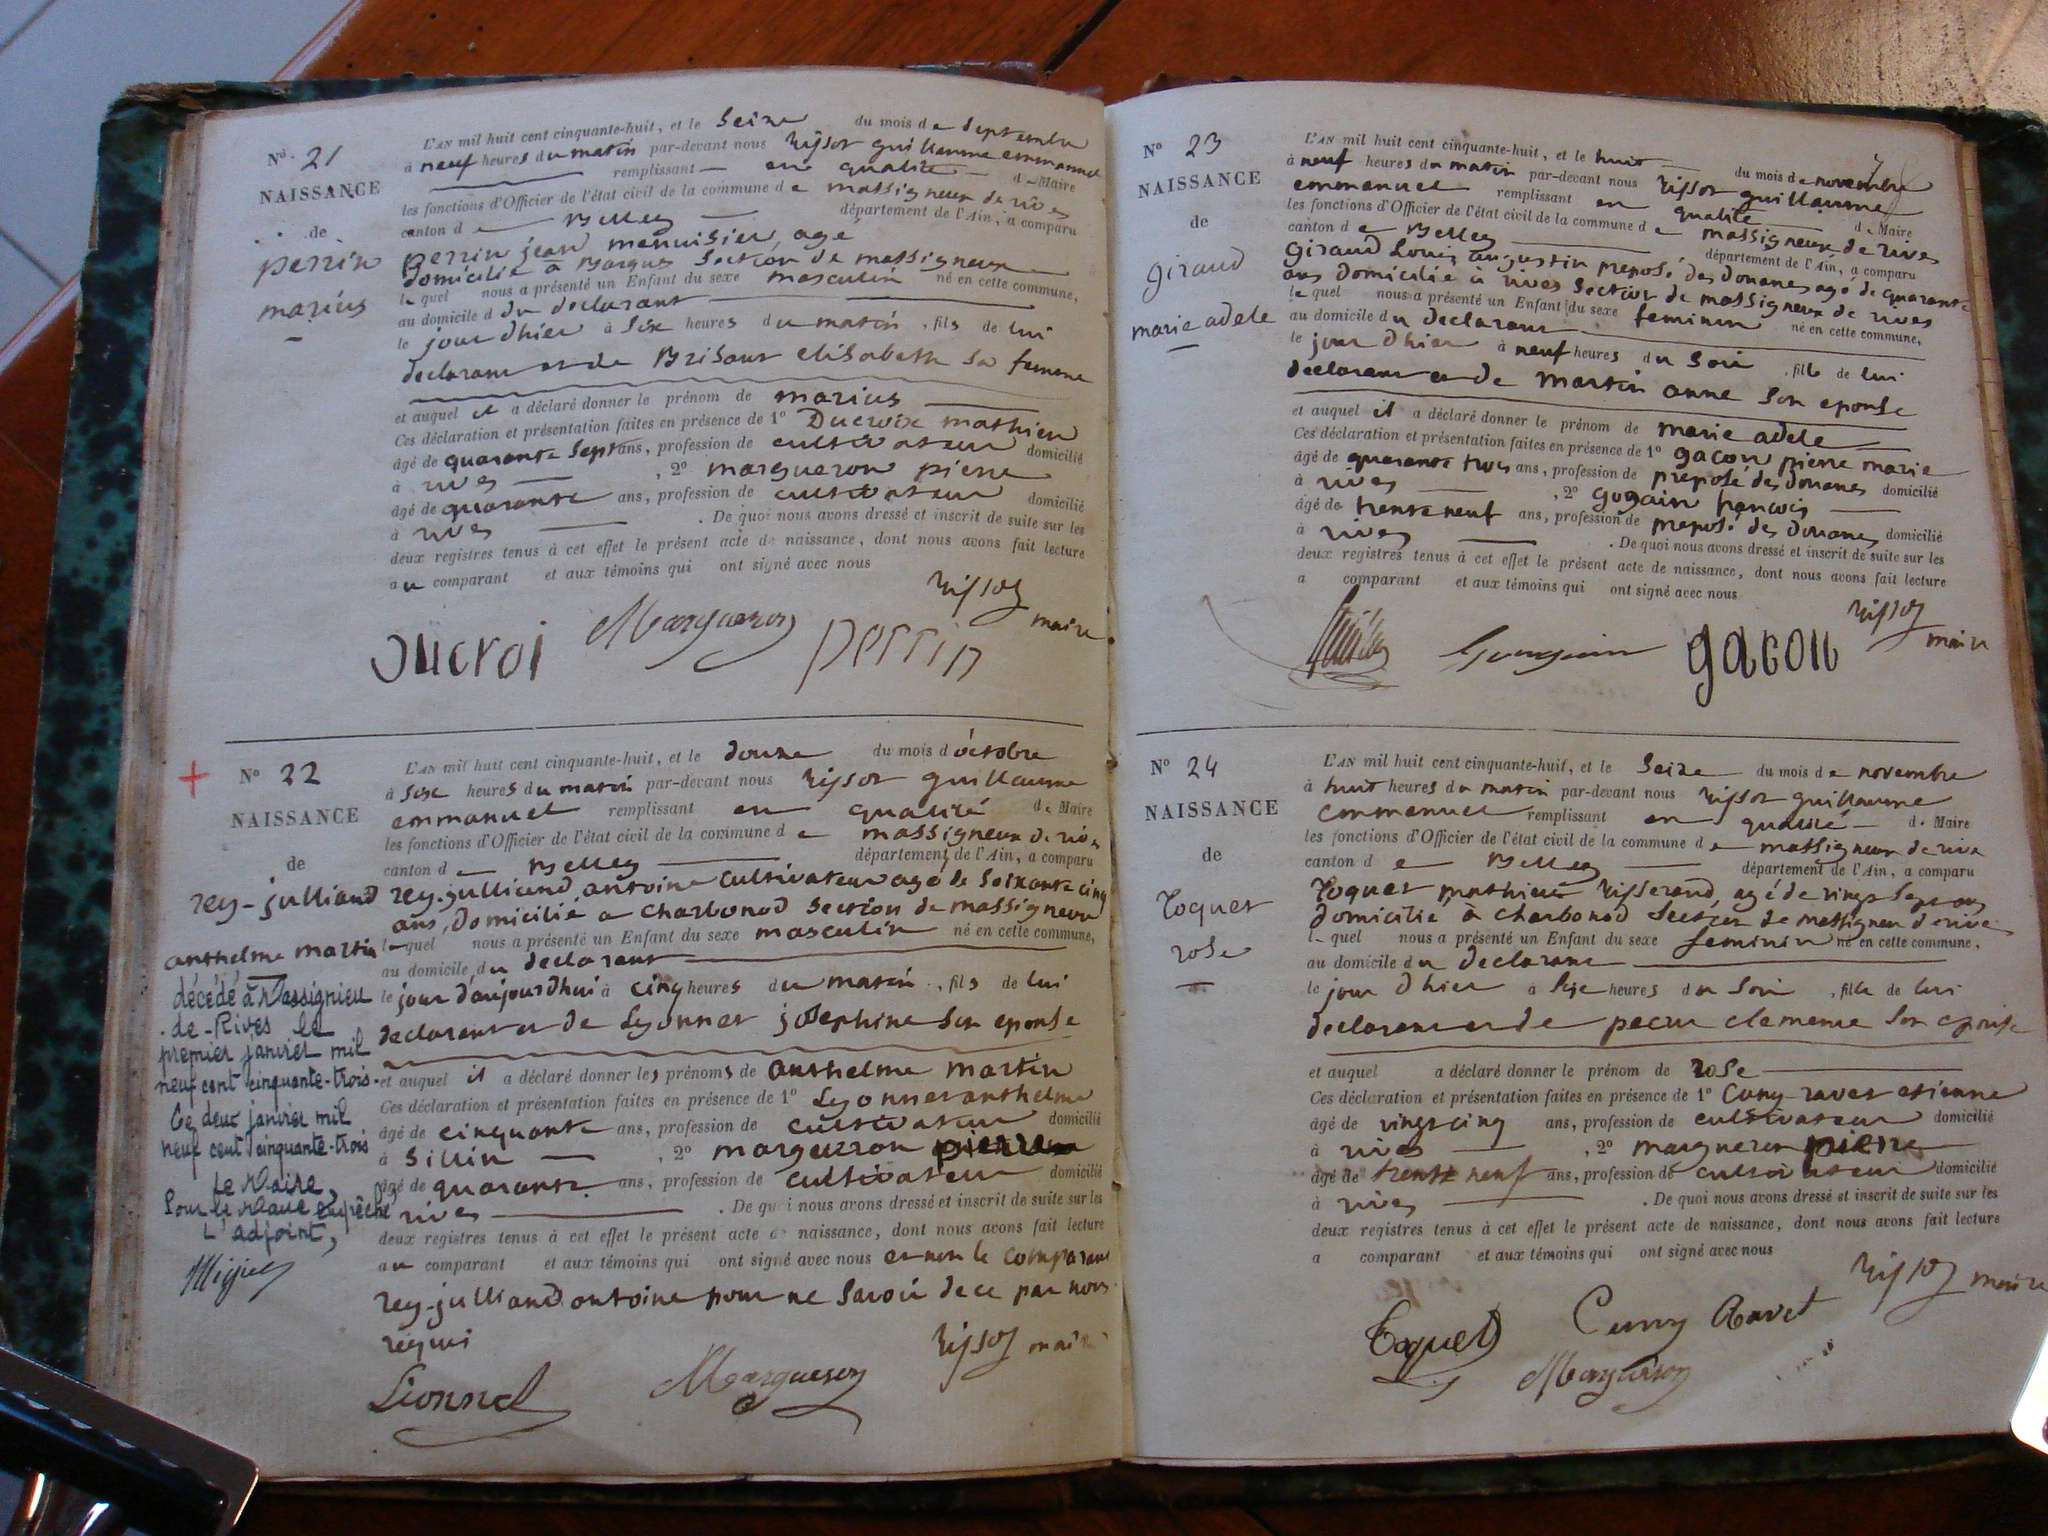 N° 21
NAISSANCE
de
perrin
marius
L'AN mil huit cent cinquante-huit, et le Seize du mois de Septembre
à neuf heures du matin par-devant nous Rissot guillaume emmanuel
remplissant en qualité de Maire
les fonctions d'Officier de l'état civil de la commune de massigneux de rives
canton de Belley département de l'Ain, a comparu
perrin jean menuisier agé
domicilié à Section de massigneux
lequel nous a présenté un Enfant du sexe masculin né en cette commune,
au domicile du declarant
le jour dhier à Six heures du matin, fils de lui
declarant et de Brisaut elisabette Sa femme
et auquel il a déclaré donner le prénom de marius
Ces déclaration et présentation faites en présence de 1° Ducroix mathieu
âgé de quarante Sept ans, profession de cultivateur domicilié
à rives, 2° margueron pierre
âgé de quarante ans, profession de cultivateur domicilié
à rives. De quoi nous avons dressé et inscrit de suite sur les
deux registres tenus à cet effet le présent acte de naissance, dont nous avons fait lecture
au comparant et aux témoins qui ont signé avec nous
Rissot
maire
Ducroi Margueron perrin
N° 22
NAISSANCE
de
rey-julliand
anthelme martin
décédé à Massignieu
-de-Rives le
premier janvier mil
neuf cent cinquante-trois.
Ce deux janvier mil
neuf cent cinquante-trois
Le Maire,
Pour le Maire empêché
L'adjoint,
L'AN mil huit cent cinquante-huit, et le douze du mois d'octobre
à Six heures du matin par-devant nous Rissot guillaume
emmanuel remplissant en qualité de Maire
les fonctions d'Officier de l'état civil de la commune de massigneux de rives
canton de Belley département de l'Ain, a comparu
rey-julliand antoine cultivateur agé de Soixante cinq
ans, domicilié a charbonod Section de massigneux
lequel nous a présenté un Enfant du sexe masculin né en cette commune,
au domicile du declarant
le jour d'aujourdhui à cinq heures du matin, fils de lui
declarant et de Lyonnet josephine Son epouse
et auquel il a déclaré donner les prénoms de anthelme martin
Ces déclaration et présentation faites en présence de 1° Lyonnet anthelme
âgé de cinquante ans, profession de cultivateur domicilié
à Sillin, 2° margueron pierre
âgé de quarante ans, profession de cultivateur domicilié
à rives. De quoi nous avons dressé et inscrit de suite sur les
deux registres tenus à cet effet le présent acte de naissance, dont nous avons fait lecture
au comparant et aux témoins qui ont signé avec nous et non le comparant
rey-julliand antoine pour ne Savoir de ce par nous
requi
Rissot maire
Lionnel Margueron
N° 23
NAISSANCE
de
giraud
marie adele
L'AN mil huit cent cinquante-huit, et le huit du mois de novembre
à neuf heures du matin par-devant nous Rissot guillaume
emmanuel remplissant en qualité de Maire
les fonctions d'Officier de l'état civil de la commune de massigneux de rives
canton de Belley département de l'Ain, a comparu
giraud Louis augustin preposé des douanes agé de quarante
ans domicilié à rives Section de massigneux de rives
lequel nous a présenté un Enfant du sexe feminin né en cette commune,
au domicile du declarant
le jour dhier à neuf heures du Soir, fille de lui
declarant et de martin anne Son epouse
et auquel il a déclaré donner le prénom de marie adele
Ces déclaration et présentation faites en présence de 1° gacon pierre marie
âgé de quarante trois ans, profession de preposé des douanes domicilié
à rives, 2° gogain francois
âgé de trente neuf ans, profession de preposé des douanes domicilié
à rives. De quoi nous avons dressé et inscrit de suite sur les
deux registres tenus à cet effet le présent acte de naissance, dont nous avons fait lecture
a comparant et aux témoins qui ont signé avec nous
Rissot
maire
gacon
N° 24
NAISSANCE
de
Toquet
rose
L'AN mil huit cent cinquante-huit, et le Seize du mois de novembre
à huit heures du matin par-devant nous Rissot guillaume
emmanuel remplissant en qualité de Maire
les fonctions d'Officier de l'état civil de la commune de massigneux de rive
canton de Belley département de l'Ain, a comparu
Toquet mathieu tisserand, agé de vingt Sept ans
domicilié à charbonod Section de massigneux de rives
lequel nous a présenté un Enfant du sexe feminin né en cette commune,
au domicile du declarant
le jour dhier à heures du Soir, fille de lui
declarant et de clemence Son epouse
et auquel a déclaré donner le prénom de rose
Ces déclaration et présentation faites en présence de 1° Cuny ravet etienne
âgé de vingt cinq ans, profession de cultivateur domicilié
à rives, 2° margueron pierre
âgé de trente neuf ans, profession de cultivateur domicilié
à rives. De quoi nous avons dressé et inscrit de suite sur les
deux registres tenus à cet effet le présent acte de naissance, dont nous avons fait lecture
a comparant et aux témoins qui ont signé avec nous
Rissot maire
Toquet Cuny Ravet
Margueron